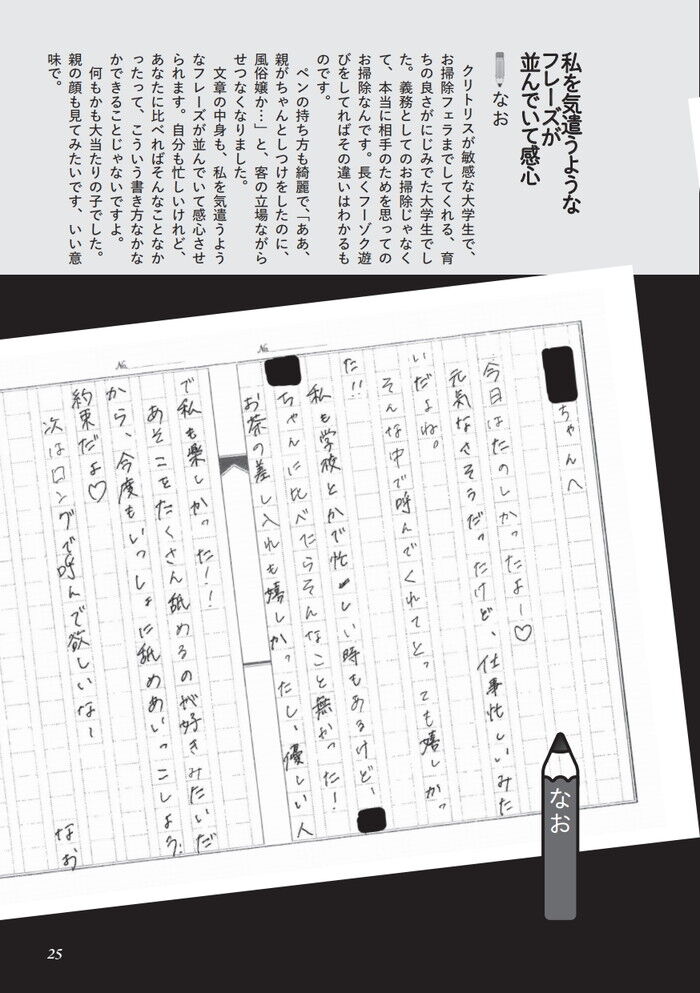 私を気遣うような
フレーズが
並んでいて感心
なお
クリトリスが敏感な大学生で、
お掃除フェラまでしてくれる、育
ちの良さがにじみでた大学生でし
た。義務としてのお掃除じゃなく
て、本当に相手のためを思っての
お掃除なんです。長くフーゾク遊
びをしてればその違いはわかるも
のです。
ペンの持ち方も綺麗で、「ああ、
親がちゃんとしつけをしたのに、
風俗嬢か…」と、客の立場ながら
せつなくなりました。
文章の中身も、私を気遣うよう
なフレーズが並んでいて感心させ
られます。自分も忙しいけれど、
あなたに比べればそんなことなか
ったって、こういう書き方なかな
かできることじゃないですよ。
何もかも大当たりの子でした。
親の顔も見てみたいです、いい意
味で。
ちゃんへ
今日はたのしかったよー♡
元気なさそうだったけど、仕事忙しいみた
いだよね。
そんな中で呼んでくれてとっても嬉しかっ
た!!
私も学校とかで忙しい時もあるけど、
ちゃんに比べたらそんなこと無かった!
お茶の差し入れも嬉しかったし、優しい人
で私も楽しかった!!
あそこをたくさん舐めるのが好きみたいだ
から、今度もいっしょに舐めあいっこしよう。
約束だよ♡
次はロングで呼んで欲しいなー
なお
No.
No.
なお
25